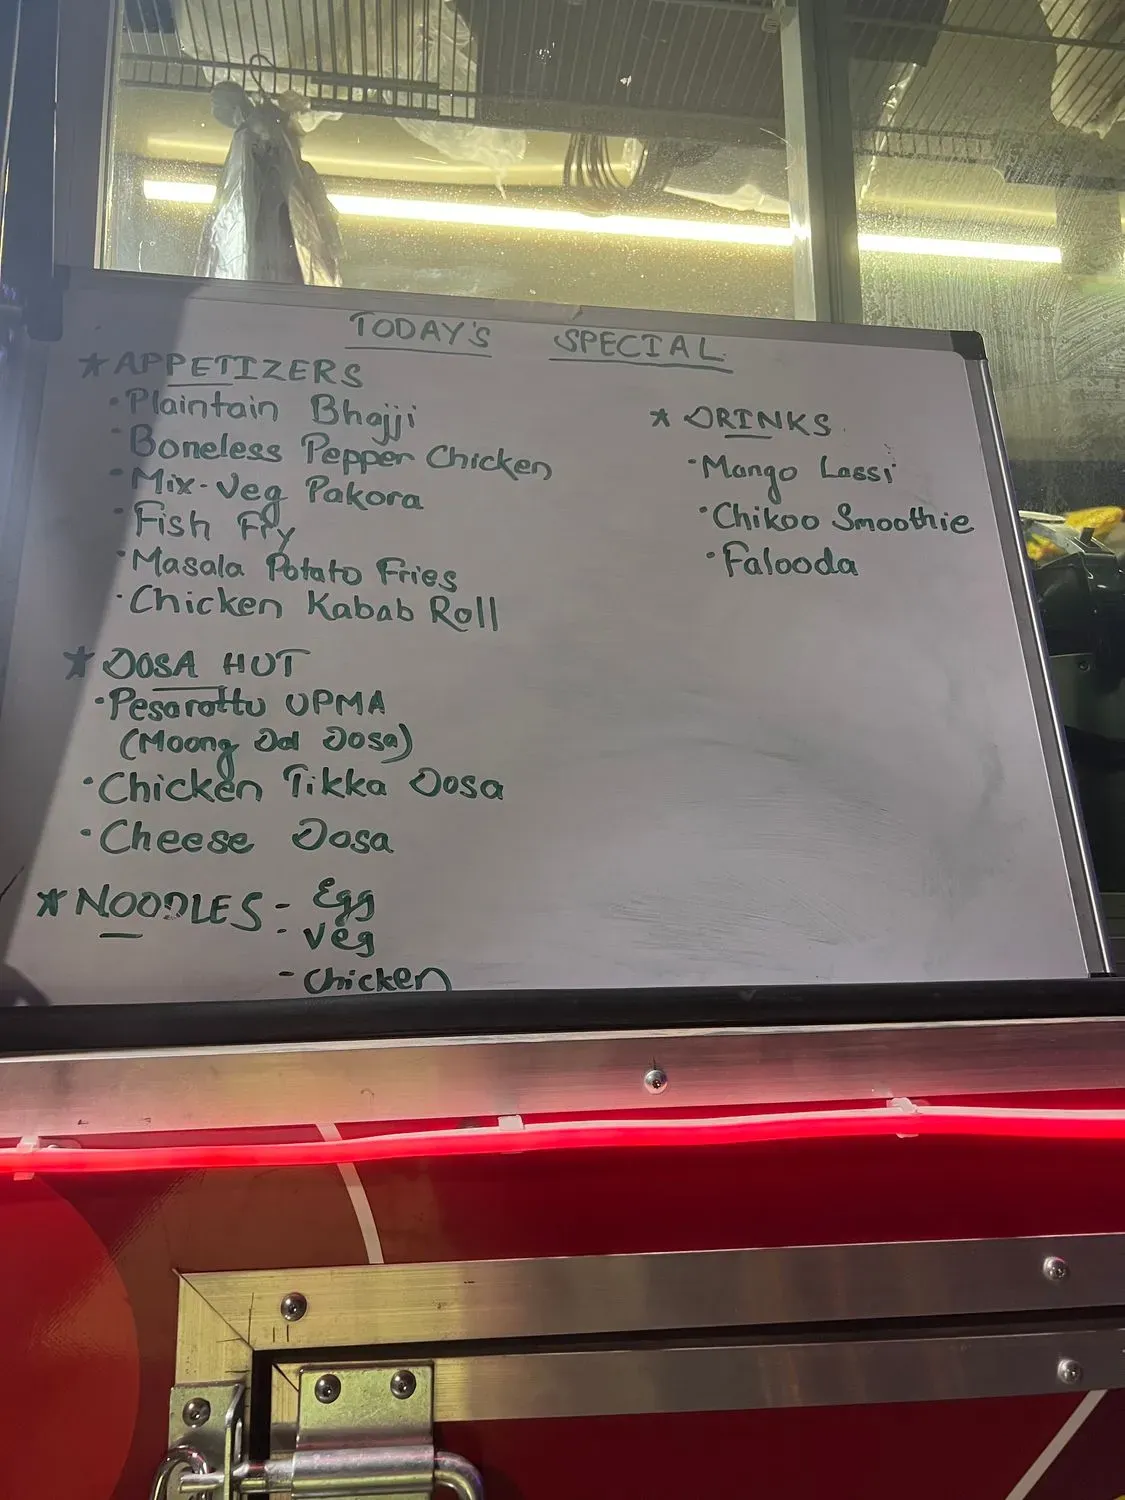 TODAY'S SPECIAL
★ APPETIZERS
• Plaintain Bhajji
• Boneless Pepper Chicken
• Mix-Veg Pakora
• Fish Fry
• Masala Potato Fries
• Chicken Kabab Roll
★ DOSA HUT
• Pesarattu UPMA
(Moong Dal Dosa)
• Chicken Tikka Dosa
• Cheese Dosa
★ NOODLES - Egg
- Veg
- Chicken
★ DRINKS
• Mango Lassi
• Chikoo Smoothie
• Falooda